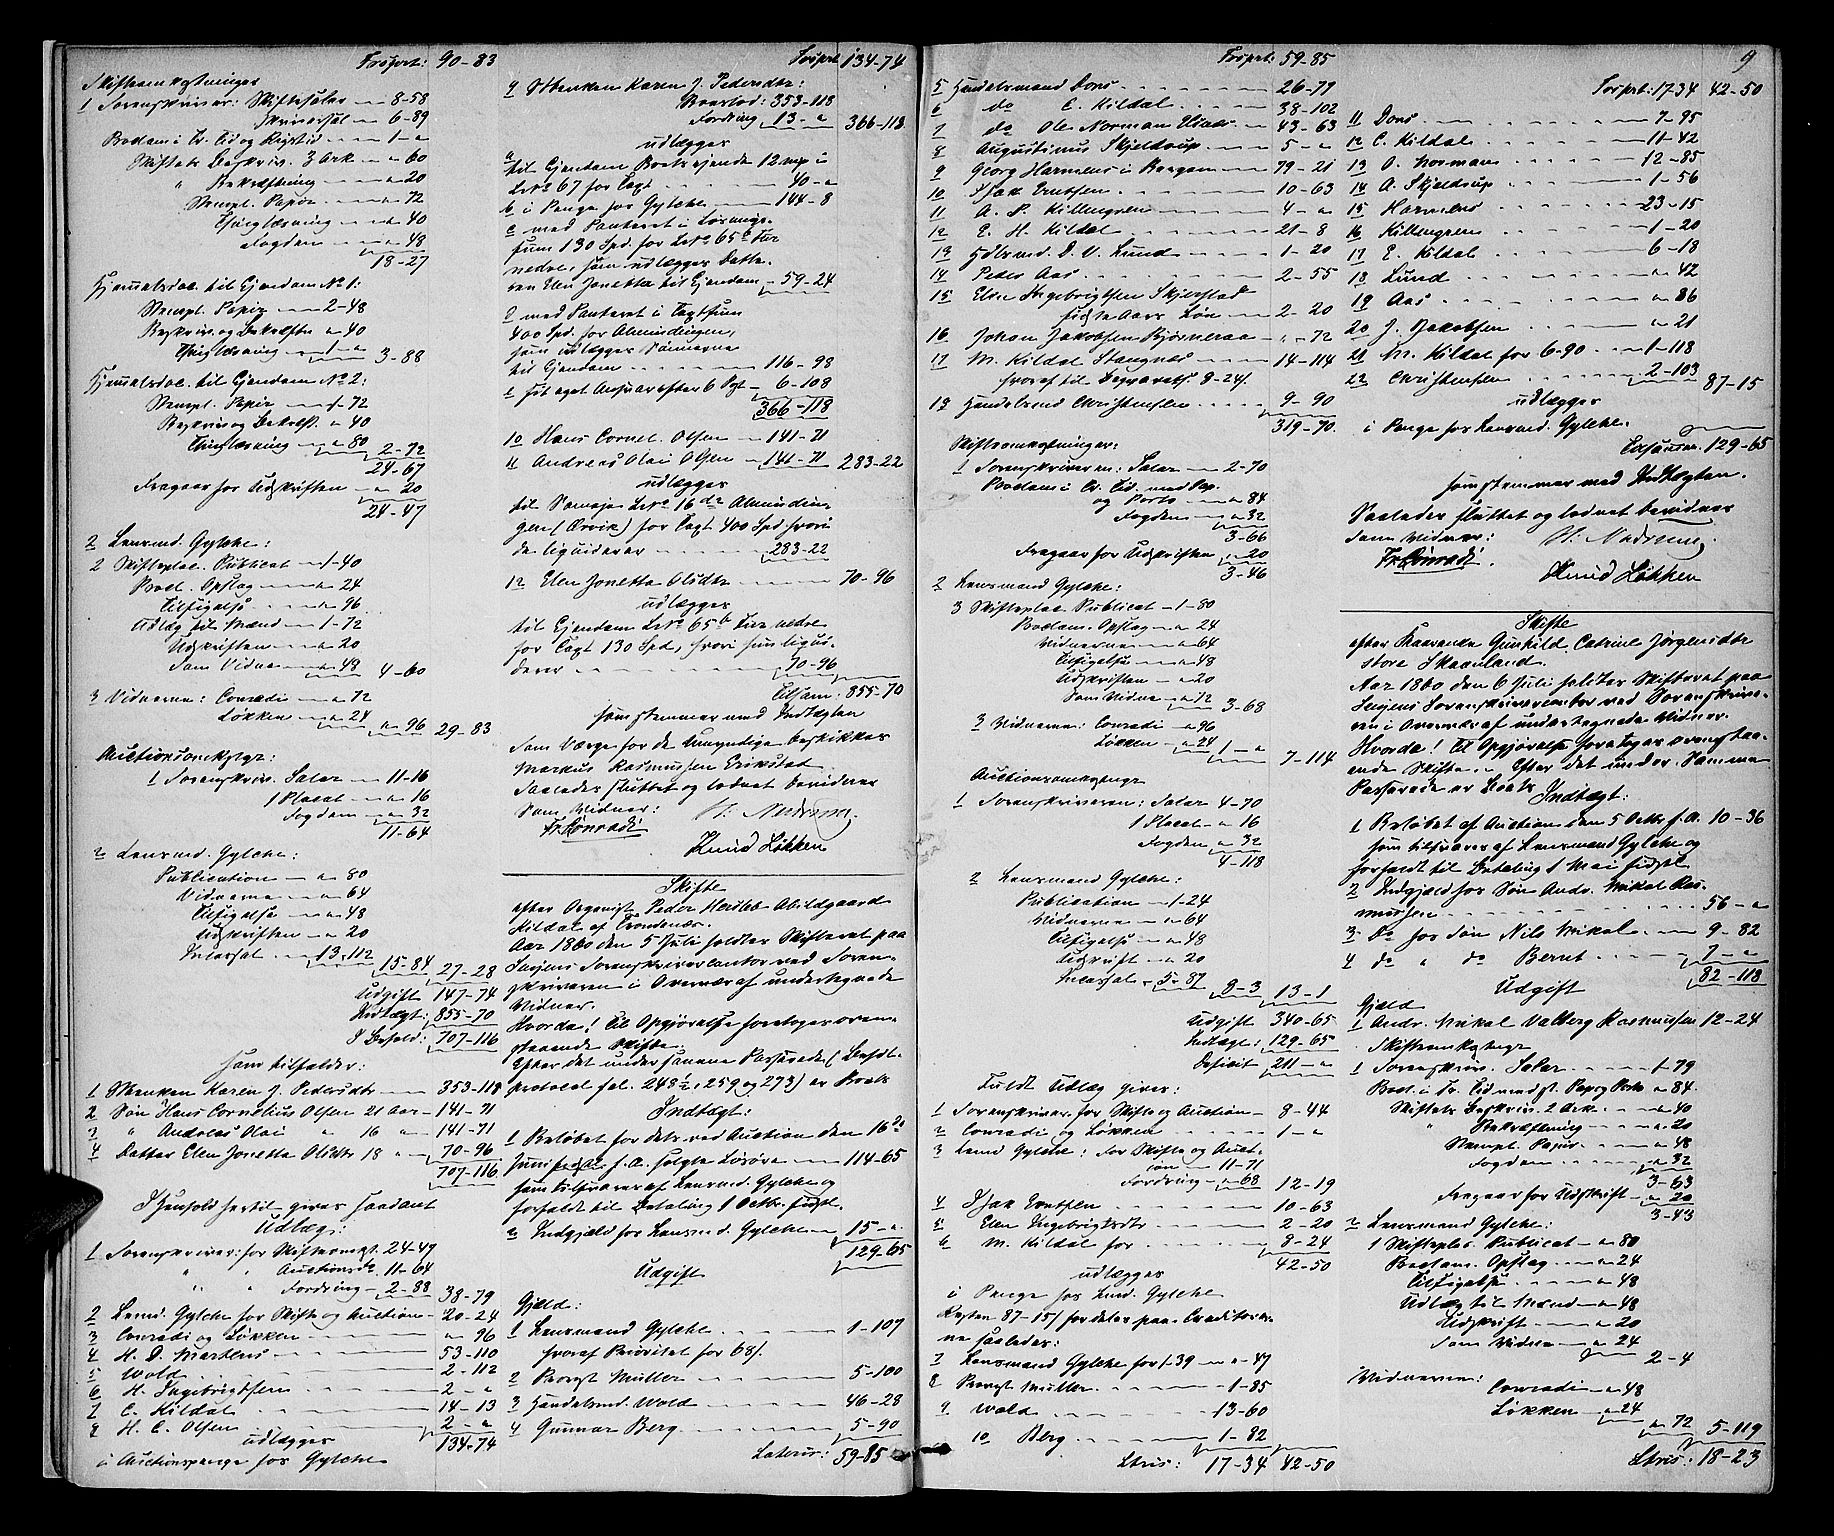 Frsport: 90-83
Skifteomkostninger
1 Sorenskriver: Skiftesalar — 8-58
Skriversal — 6-89
Bodam i Tr. Tid og Rigstid — 1-"
Skiftets Beskriv. 3 Ark — " 60
" Bekræftning — " 20
Stempl. Papir — " 72
Thinglæsning — " 40
Fogden — " 48
18-27
Hjemmelsdoc. til Ejendom No 1:
Stempl. Papir — 2-48
Beskriv. og Bekræftn " 40
Thinglæsning — 1-" 3-88
Hjemmelsdoc. til Ejendom No 2:
Stempl. Papir — 1-72
Beskriv. og Bekræft. " 40
Thinglæsning " 80 2-72
24-67
Fragaar for Udskriften — " 20
24-47
2 Lensmd. Gylche:
2 Skifteplac. Publicat — 1-40
Bod. Opslag — " 24
Tilsigelse — " 96
Udlæg til Mænd — 1-72
Udskriften — " 20
Som Vidne — " 48 4-60
3 Vidnerne: Conradi — " 72
Løkken — " 24 " 96 29-83
Auctionsomkstgr:
1 Sorenskriv. Salar — 11-16
1 Placat — " 16
Fogden — " 32
11-64
2 Lensmd. Gylche:
Publication — " 80
Vidnerne — " 64
Tilsigelse — " 48
Udskriften — " 20
Incassal — 13-112
15-84 27-28
Udgift 147-74
Indtægt: 855-70
I Behold: 707-116
som tilfalder:
1 Enken Karen J. Pedersdtr — 353-118
2 Søn Hans Cornelius Olsen 21 Aar — 141-71
3 " Andreas Olai " 16 " — 141-71
4 Datter Elen Jonetta Olsdtr 18 " — 70-96
707-116
I Henhold hertil gives saadant
Udlæg:
1 Sorenskriver: for Skifteomkgt. 24-47
" " Auctionsdo 11-64
" " Fordring — 2-88 38-79
2 Lensmd. Gylche for Skifte og Auction — 20-24
3 Conradi og Løkken — " 96
4 H. D. Martens — 53-110
5 Wold — 2-112
6 H. Ingebrigtsen — 2-"
7 C. Kildal — 14-13
8 H. C. Olsen — 2-"
udlægges 134-74
i Auctionspenge hos Gylche
Trsprt 134-74
9 Enken Karen J. Pedersdtr:
Boeslod: 353-118
Fordring 13-" 366-118
udlægges
a til Ejendom Boets ejende 12 mp i
LNo 67 for Taxt — 40-"
b i Penge hos Gylche — 144-8
c med Panteret i Løsnings-
sum 130 Spd. for LNo 65b Fier
nedre, som udlægges Datte-
ren Elen Jonetta til Ejendom — 59-24
d med Panteret i Taxtsum
400 Spd. for Almindingen,
som udlægges Sønnerne
til Ejendom — 116-98
e sit eget Ansvar efter 6 Pgt — 6-108
366-118
10 Hans Cornel. Olsen — 141-71
11 Andreas Olai Olsen — 141-71 283-22
udlægges
til Sameje LNo 16d Almindin-
gen (Ørvik) for Taxt 400 Spd. hvori
de liqviderer — 283-22
12 Elen Jonetta Olsdtr — 70-96
udlægges
til Ejendom LNo 65b Fier nedre
for Taxt 130 Spd, hvori hun liqvi-
derer — 70-96
tilsam. 855-70
som stemmer med Indtægten
Som Værge for de Umyndige beskikkes
Markus Rasmussen Erikstad
Saaledes sluttet og lovnet bevidner
Som Vidner:
Fr Conradi
Knud Løkken
Skifte
efter Organist Peder Hersleb Abildgaard
Kildal af Trondenæs.
Aar 1860 den 5 Juli holdtes Skifteret paa
Senjens Sorenskrivercontor ved Soren-
skriveren i Overvær af undertegnede
Vidner.
Hvorda! Til Opgjørelse foretoges oven-
staaende Skifte.
Efter det under samme Passerede (Behdl.
protocol fol. 248½, 259 og 273) er Boets
Indtægt:
1 Beløbet for dets ved Auction den 16de
Juni f. A. solgte Løsøre — 114-65
som tilsvares af Lensmd. Gylche og
forfaldt til Betaling 1 Octbr. sidstl.
2 Indgjæld hos Lensmd. Gylche — 15-"
129-65
Udgift
Gjæld:
1 Lensmand Gylche — 1-107
hvoraf Prioritet for 68 s.
2 Provst Müller — 5-100
3 Handelsmd. Wold — 46-28
4 Gunnar Berg — 5-90
Laterus: 59-85
Trsprt: 59-85
5 Handelsmand Dons — 26-79
6 do E. Kildal — 38-102
7 do Ole Norman Ulsnes — 43-63
8 Augustinus Skjeldrup — 5-"
9 Georg Harmens i Bergen — 79-21
10 Isak Evetsen — 10-63
11 A. P. Killengreen — 4-"
12 E. H. Kildal — 21-8
13 Hdlsmd. D. V. Lund — 1-20
14 Peder Aas — 2-55
15 Elen Ingebrigtsen Skjerstad
sidste Aars Løn — 2-20
16 Johan Jakobsen Bjørneraa — "-72
17 M. Kildal Stangnes — 14-114
hvoraf til Begravelse 8-24 s.
18 Handelsmd Christensen — 9-90
319-70
Skifteomkostninger:
1 Sorenskriveren: Salar — 2-70
Bodam i Tr. Tid. med Pap.
og Porto — " 84
Fogden — " 32
3-66
Fragaar for Udskriften " 20
3-46
2 Lensmand Gylche:
3 Skifteplac Publicat — 1-80
Bodam. Opslag — " 24
Vidnerne — " 64
Tilsigelse — " 48
Udskriften — " 20
Som Vidne — " 72 3-68
3 Vidnerne: Conradi " 96
Løkken — " 24 1-" 7-114
Auctionsomkstngr
1 Sorenskriveren: Salar 4-70
1 Placat — " 16
Fogden — " 32
4-118
2 Lensmand Gylche:
Publication — 1-24
Vidnerne — " 64
Tilsigelse — " 48
Udskrift — " 20
Incassal — 5-87
8-3 13-1
Udgift 340-65
Indtægt: 129-65
Deficit 211-"
Fuldt Udlæg gives:
1 Sorenskriver. for Skifte og Auction — 8-44
2 Conradi og Løkken — 1-"
3 Lensmd Gylche: for Skifte og Auct-
ion — 11-71
Fordring — " 68 12-19
4 Isak Evetsen — 10-63
5 Elen Ingebrigtsdtr — 2-20
6 M. Kildal for — 8-24
42-50
udlægges
i Penge hos Lensmd. Gylche
Resten 87-15 s fordeles paa Creditorer-
ne saaledes:
7 Lensmand Gylche for 1-39 — " 47
8 Provst Müller — 1-85
9 Wold — 13-60
10 Berg — 1-82
Ltris: 17-34 42-50
9
Trsprt: 17-34 42-50
11 Dons — 7-95
12 E. Kildal — 11-42
13 O. Normans — 12-85
14 A. Skjeldrup — 1-56
15 Harmens — 23-15
16 Killengreen — 1-20
17 E. Kildal — 6-18
18 Lund — " 42
19 Aas — " 86
20 J. Jakobsen — " 21
21 M. Kildal for 6-90 — 1-118
22 Christensen — 2-103 87-15
udlægges
i Penge hos Lensmd. Gylche.
Tilsammen 129-65
som stemmer med Indtægten.
Saaledes sluttet og lovnet bevidner
Som Vidner:
Fr Conradi.
Knud Løkken
Skifte
efter Kaarenke Gunhild Catrine Jørgensdtr
store Skaanland.
Aar 1860 den 6 Juli holdtes Skifteret paa
Senjens Sorenskrivercontor ved Sorenskrive-
ren i Overvær af undertegnede Vidner.
Hvorda! Til Opgjørelse foretoges ovenstaa-
ende Skifte. Efter det under Samme
Passerede er Boets Indtægt:
1 Beløbet af Auction den 5 Octbr f. A. 10-36
som tilsvares af Lensmand Gylche og
forfaldt til Betaling 1 Mai sidstl
2 Indgjæld hos Søn Andr. Mikal Ras-
mussen — 56-"
3 Do hos Søn Nils Mikal — 9-82
4 do " do Bernt — 7-"
82-118
Udgift
Gjæld
1 Andr. Mikal Valberg Rasmussen 12-24
Skifteomkstngr
1 Sorenskriv. Salar — 1-79
Bod. i Tr. Tid med st. Pap og Porto " 84
Skiftets Beskriv. 2 Ark — " 40
" Bekræftning — " 20
Stempl. Papir — " 48
Fogden — " 32
3-63
Fragaar for Udskrift — " 20
3-43
2 Lensmand Gylche:
1 Skifteplc. Publicat — " 80
Bodam. Opslag — " 24
Tilsigelse — " 48
Udlæg til Mænd — " 48
Udskrift — " 20
Som Vidne — " 24
2-4
Vidnerne:
Conradi — " 48
Løkken — " 24
" 72 5-119
Ltris: 18-23